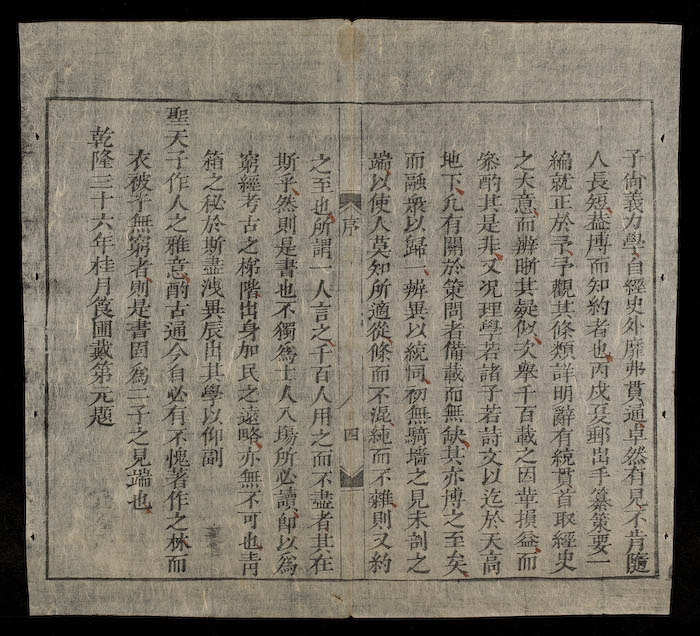 子尙義力學自經史外靡弗貫通卓然有見不肯隨
人長短益博而知約者也丙戌夏郵出手纂策要一
編就正於予予觀其條類詳明辭有統貫首取經史
之大意而辨晰其疑似次舉千百載之因革損益而
叅酌其是非又况理學若諸子若詩文以迄於天高
地下凢有關於策問者備載而無缺其亦博之至矣
而融散以歸一辨異以統同初無騎墻之見未剖之
端以使人莫知所適從條而不混純而不雜則又約
序
四
之至也所謂一人言之千百人用之而不盡者其在
斯乎然則是書也不獨爲士人入塲所必讀卽以爲
窮經考古之梯階出身加民之遠略亦無不可也靑
箱之秘於斯盡洩異辰出其學以仰副
聖天子作人之雅意酌古通今自必有不愧著作之林而
衣被于無窮者則是書固爲二子之見端也
乾隆三十六年桂月筤圃戴第元題